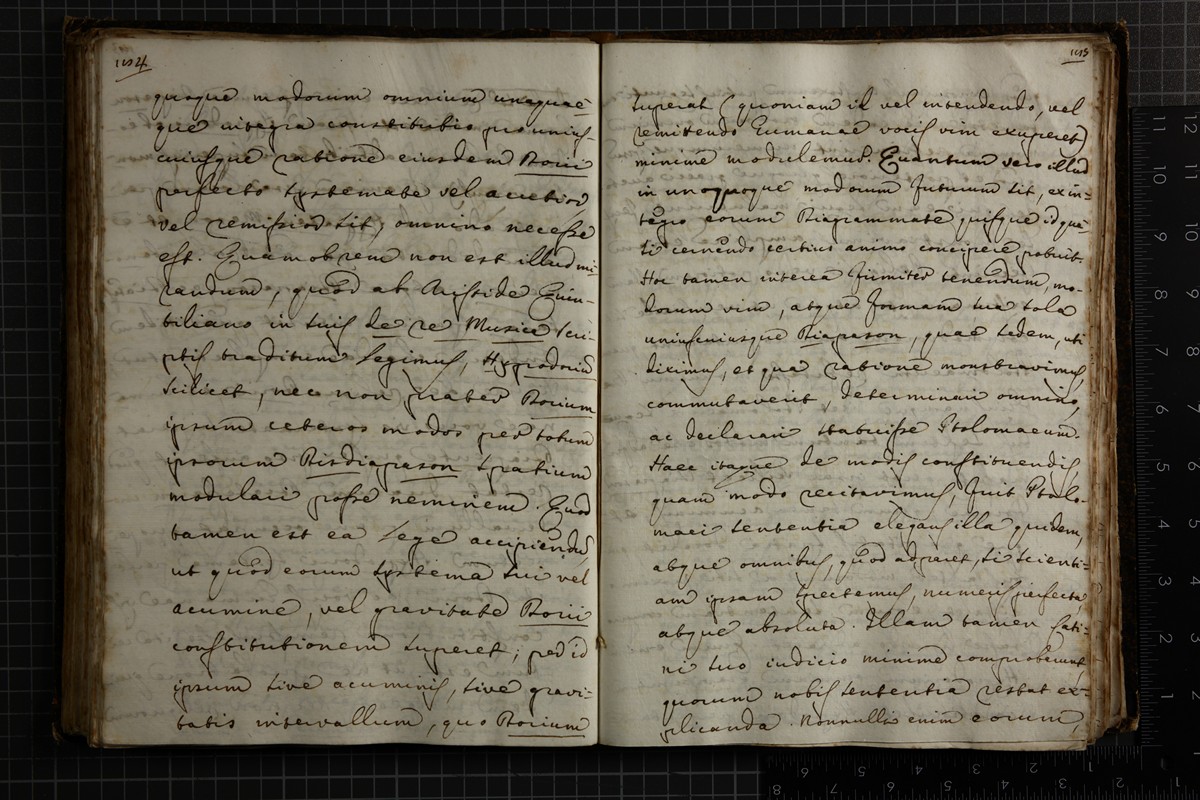 1134
quoque modorum omnium unaquae-
que integra constitutio pro unius-
cuiusque ratione eiusdem Dorii
perfecto systemate vel acutior
vel remissior sit, omnino necesse
est. Quamobrem non est illud mi
randum, quod ab Aristide Quin-
tiliano in suis de re Musica scri-
ptis traditum legimus, Hypodoriu
scilicet, nec non praeter Dorium
ipsum ceteros modos per totum
ipsorum Bisdiapason spatium
modulari posse neminem. Quod
tamen est ea lege accipiendu,
ut quod eorum systema sui vel
acumine, vel gravitate Dorii
constitutionem superet; per id
ipsum sive acuminis, sive gravi-
tatis intervallum, quo Dorium
1135
superat (quoniam id vel intendendo, vel
remittendo humanae vocis vim exuperet)
minime modulemur. Quantum vero illud
in unoquoque modorum futurum sit, ex in-
tegro eorum Diagrammate quisque id que
si cernendo certius animo concipere potuit.
Hoc tamen interea firmiter tenendum, mo-
dorum vim, atque formam sua sola
uniuscuiusque Diapason, quae sedem, uti
diximus, et qua ratione monstravimus,
commutaverit, determinari omnino,
ac declarari statuisse Ptolomaeum.
Haec itaque de modis constituendis,
quam modo recitavimus, fuit Ptolo-
maei sententia elegans illa quidem,
atque omnibus, quod apparet, si scienti-
am ipsam spectemus, numeris perfecta,
atque absoluta. Illam tamen Lati-
ni suo iudicio minime comproberunt,
quorum nobis sententia restat ex-
plicanda. Nonnulli enim eorum,